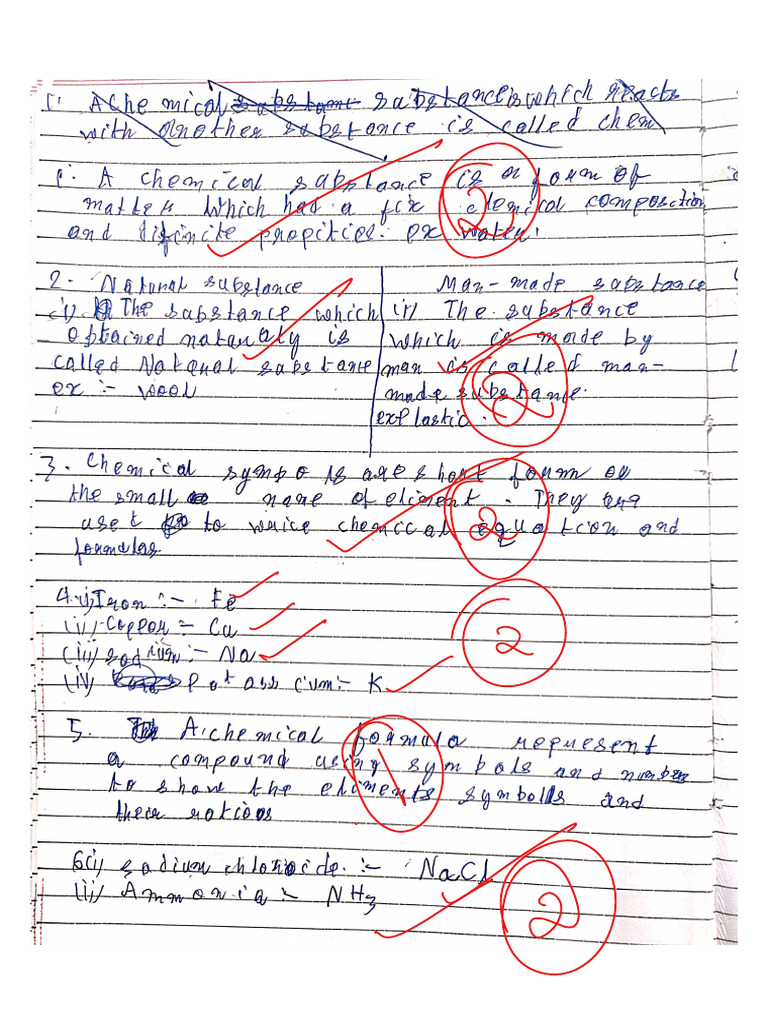 1. A Chemical substance substance is which reacts
with another substance is called chem
1. A chemical substance is a form of
matter which had a fix chemical composction
and difinite propities. ex water.
2. Natural substance
i) The substance which
obtained naturaly is
called Natural substance
ex :- wool
Man-made substance
ii) The substance
which is made by
man is called man-
made substance.
ex plastic.
2
2
3. Chemical symbols are short fourm or
the small name of eliment. They are
uset to write chemical equation and
formulas.
2
4. i) Iron :- Fe
(ii) Copper :- Cu
(iii) sodium :- Na
(iv) potasscium :- K
2
5. A chemical formula represent
a compound using symbols and numbers
to show the elements symbols and
their ratios
1
6(i) sodium chloride :- NaCl
(ii) Ammonia :- NH3
2